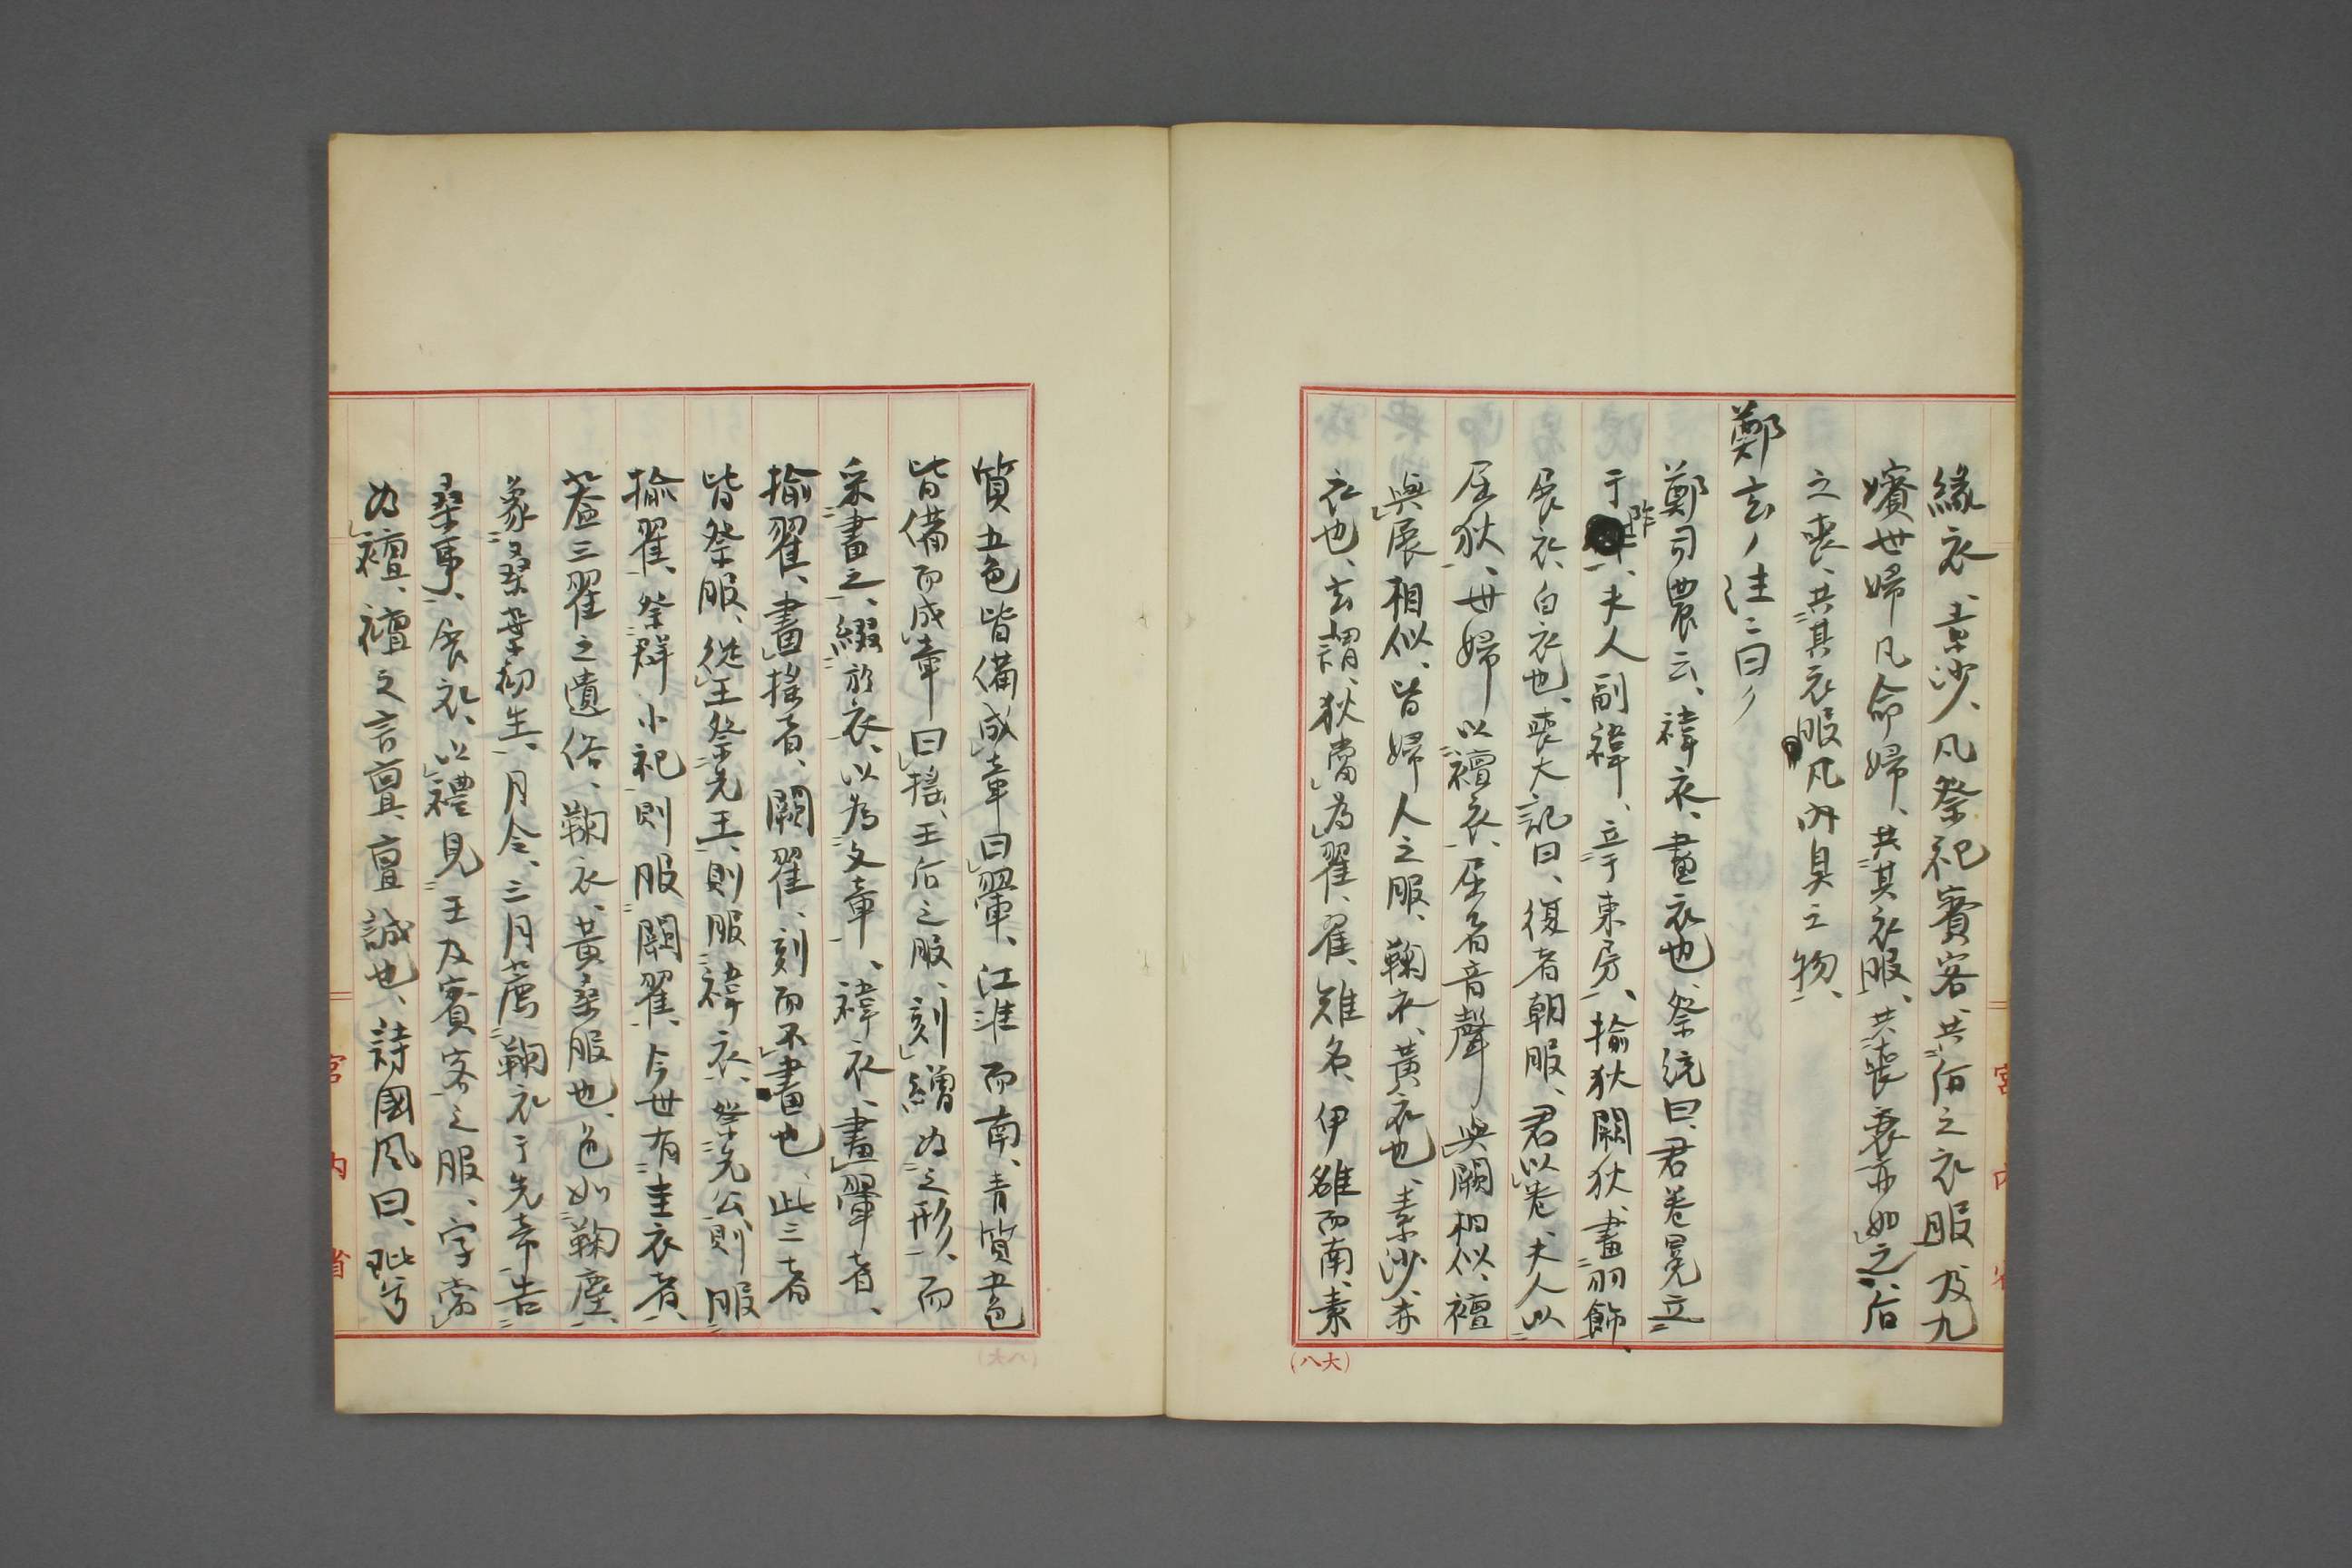 緣衣、素沙、凡祭祀賓客、共后之衣服、及九
嬪世婦凡命婦、共其衣服、共喪衰亦如之、后
之喪、共其衣服凡內具之物、
鄭玄ノ注ニ曰ク
鄭司農云、褘衣、畫衣也、祭統曰、君卷冕立
于阼、夫人副褘、立于東房、揄狄闕狄、畫羽飾、
展衣、白衣也、喪大記曰、復者朝服、君以卷、夫人以
屈狄、世婦以襢衣、屈者音聲與闕相似、襢
與展相似、皆婦人之服、鞠衣、黃衣也、素沙、赤
衣也、玄謂、狄當為翟、翟、雉名、伊雒而南、素
(八大)
質五色皆備成章曰翬、江淮而南、青質五色
皆備而成章曰搖、王后之服、刻繒為之形、而
采畫之、綴於衣、以為文章、褘衣、畫翬者、
揄翟、畫搖者、闕翟、刻而不畫也、此三者
皆祭服、從王祭先王、則服褘衣、祭先公、則服
揄翟、祭群小祀則服闕翟、今世有圭衣者、
蓋三翟之遺俗、鞠衣、黃桑服也、色如鞠塵、
象桑葉初生、月令、三月薦鞠衣于先帝告
桑事、展衣、以禮見王及賓客之服、字當
為襢、襢之言亶、亶誠也、詩國風曰、玼兮
宮內省
宮內省